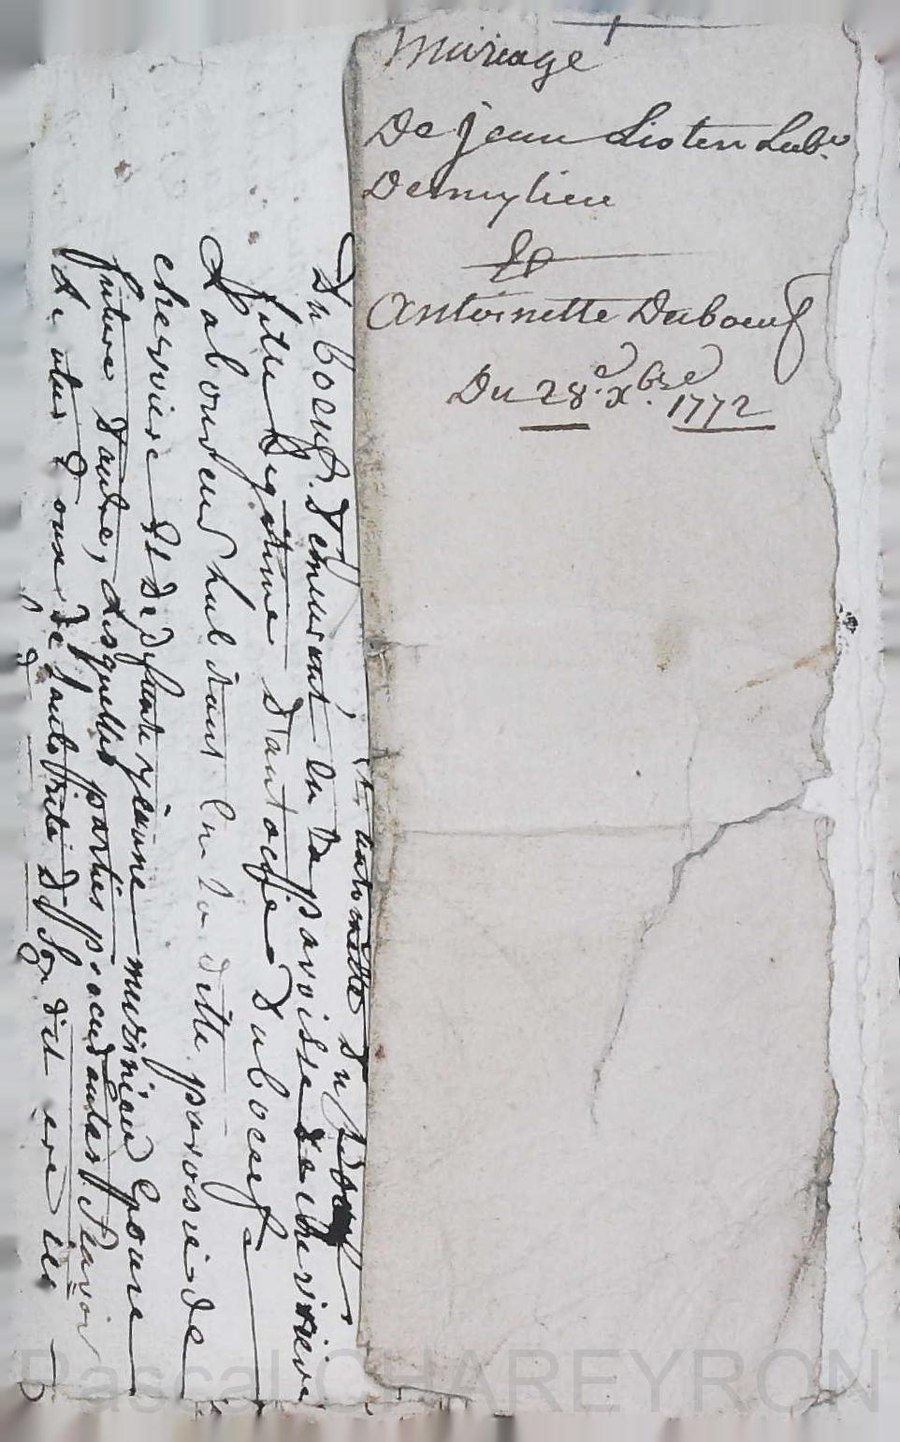 Mariage
De jean Lioten Lab.r
Demylieu
Et
antoinette Duboeuf
Du 28.e xbre 1772
antoinette Du
Duboeuf. demeurant en la paroisse de chevrieve
fille legitime d'antoine duboeuf
Laboureur habitant en la ditte paroisse de
chevriere Et de defunte jeanne murinieu Epouse
future d'autre, desquelles parties procedantes scavoir
de l'autorité de son dit
Pascal CHAREYRON